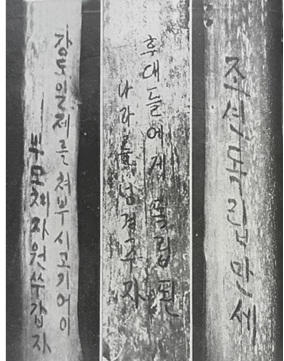 조선독립만세
후대들에게 독립된
나라를 넘겨주자
강도일제를 쳐부시고기어이
부모처자원쑤갚자